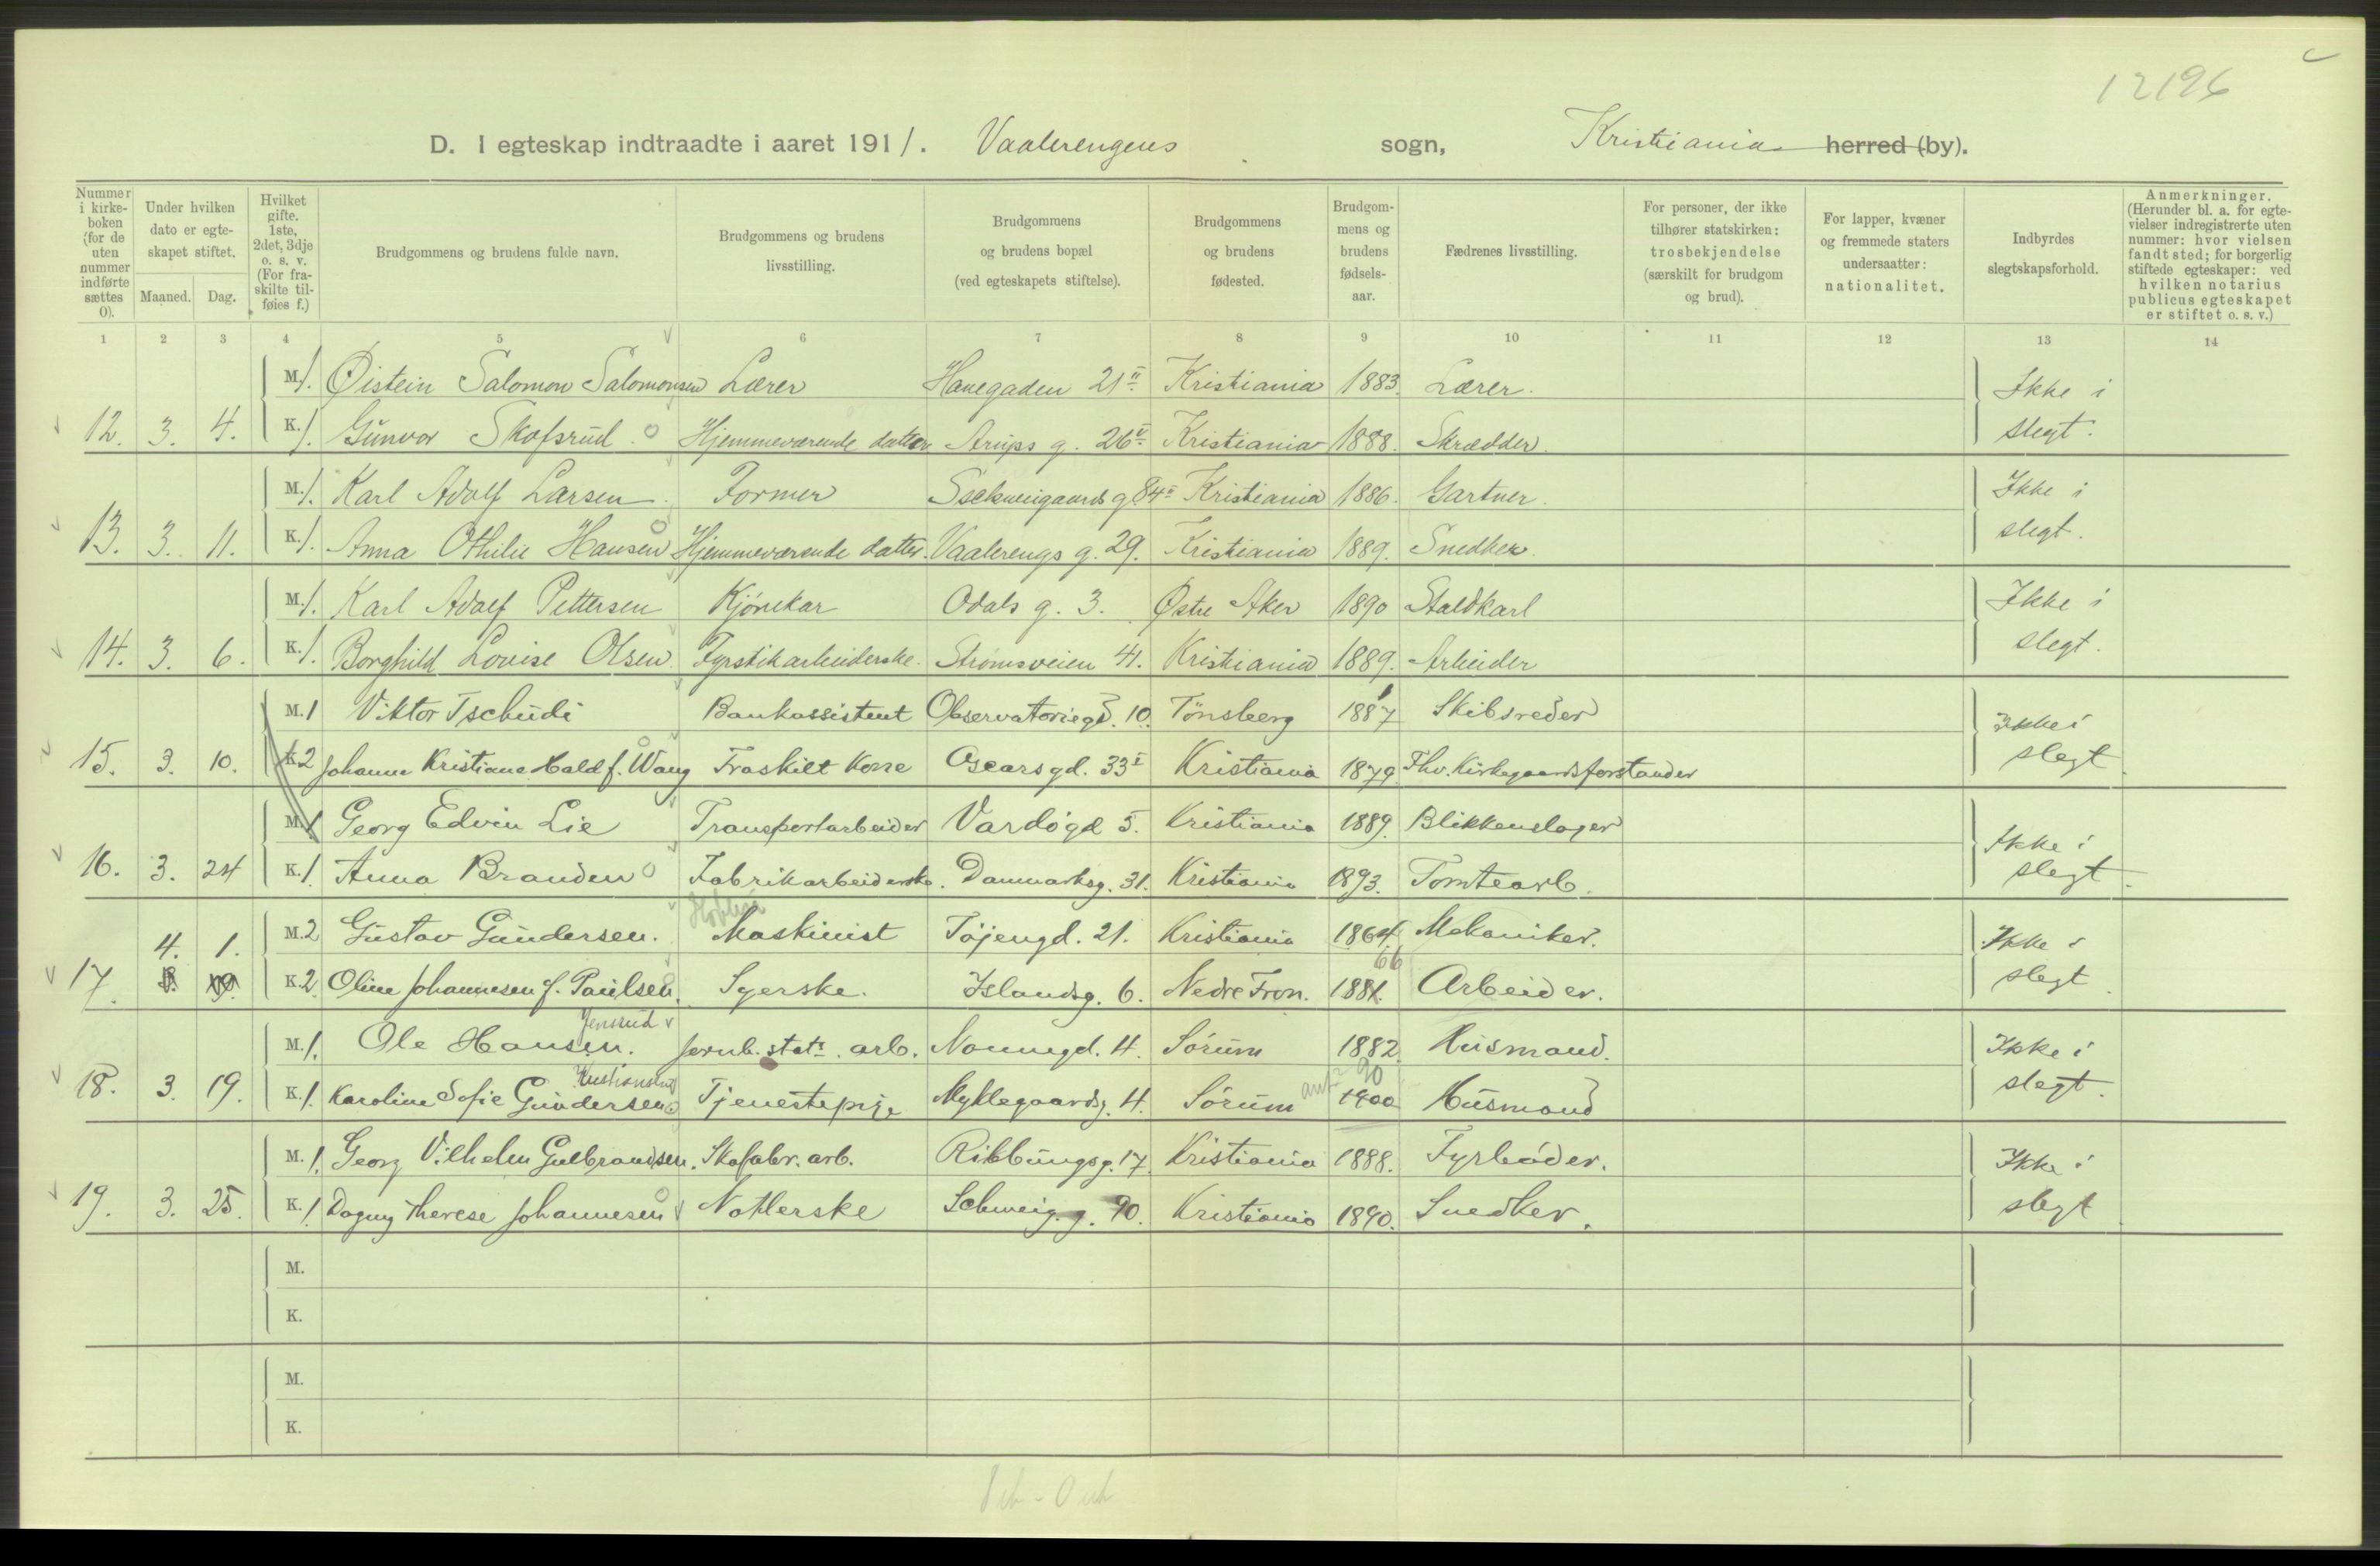 12196
D. I egteskap indtraadte i aaret 1911. Vaalerengens sogn, Kristiania herred (by).
Nummer i kirke-boken (for de uten nummer indførte sættes 0).
Under hvilken dato er egte-skapet stiftet.
Maaned. Dag.
Hvilket gifte. 1ste, 2det, 3dje o. s. v. (For fra-skilte til-føies f.)
Brudgommens og brudens fulde navn.
Brudgommens og brudens livsstilling.
Brudgommens og brudens bopæl (ved egteskapets stiftelse).
Brudgommens og brudens fødested.
Brudgom-mens og brudens fødsels-aar.
Fædrenes livsstilling.
For personer, der ikke tilhører statskirken: trosbekjendelse (særskilt for brudgom og brud).
For lapper, kvæner og fremmede staters undersaatter: nationalitet.
Indbyrdes slegtskapsforhold.
Anmerkninger. (Herunder bl. a. for egte-vielser indregistrerte uten nummer: hvor vielsen fandt sted; for borgerlig stiftede egteskaper: ved hvilken notarius publicus egteskapet er stiftet o. s. v.)
1 2 3 4 5 6 7 8 9 10 11 12 13 14
M. 1. Øistein Salomon Salomonsen Lærer Hanegaden 21 II Kristiania 1883. Lærer. Ikke i
12. 3. 4. K. 1. Gunvor Skofsrud. Hjemmeværende datter Arups g. 26 V Kristiania 1888. Skrædder. slegt.
M. 1. Karl Adolf Larsen. Former Sschweigaards g 84 II Kristiania 1886. Gartner. Ikke i
13. 3. 11. K. 1. Anna Othilie Hansen Hjemmeværende datter. Vaalerengs g. 29. Kristiania 1889. Snedker. slegt.
M. 1. Karl Adolf Pettersen Kjørekar Odals g. 3. Østre Aker 1890 Staldkarl Ikke i
14. 3. 6. K. 1. Borghild Lovise Olsen. Fyrstikarbeiderske. Strømsveien 4. Kristiania 1889. Arbeider slegt.
M. 1 Viktor Tschudi Bankassistent Observatoriegd. 10. Tønsberg 1887 Skibsreder Ikke i
15. 3. 10. K. 2 Johanne Kristiane Hald f. Wang Fraskilt Kone Oscarsgd. 33 I Kristiania 1879 Fhv. Kirkegaardsforstander slegt.
M. 1 Georg Edvin Lie Transportarbeider Vardøgd 5. Kristiania 1889. Blikkenslager Ikke i
16. 3. 24 K. 1 Anna Branden Fabrikarbeiderske. Danmarksg. 31. Kristiania 1893. Tomtearb. slegt.
4. 1. M. 2 Gustav Gundersen. Maskinist Tøjengd. 21. Kristiania 1864. Mekaniker. Ikke i
17. K. 2 Oline Johannesen f. Paulsen. Syerske. Islandsg. 6. Nedre Fron. 1881. 66 Arbeider. slegt.
Jensrud
M. 1. Ole Hansen. Jernb. stats. arb. Nonnegd. 4. Sørum 1882. Husmand. Ikke i
Kristiansen 90
18. 3. 19. K. 1. Karoline Sofie Gundersen Tjenestepige Nyklegaardsg. 4. Sørum 1900 Husmand slegt.
M. 1. Georg Vilhelm Gulbrandsen. Skofabr. arb. Ribbungsg. 17. Kristiania 1888. Fyrbøder. Ikke i
19. 3. 25. K. 1 Dagny Therese Johannesen Notlerske Schweig. g. 90. Kristiania 1890. Snedker. slegt.
M.
K.
M.
K.